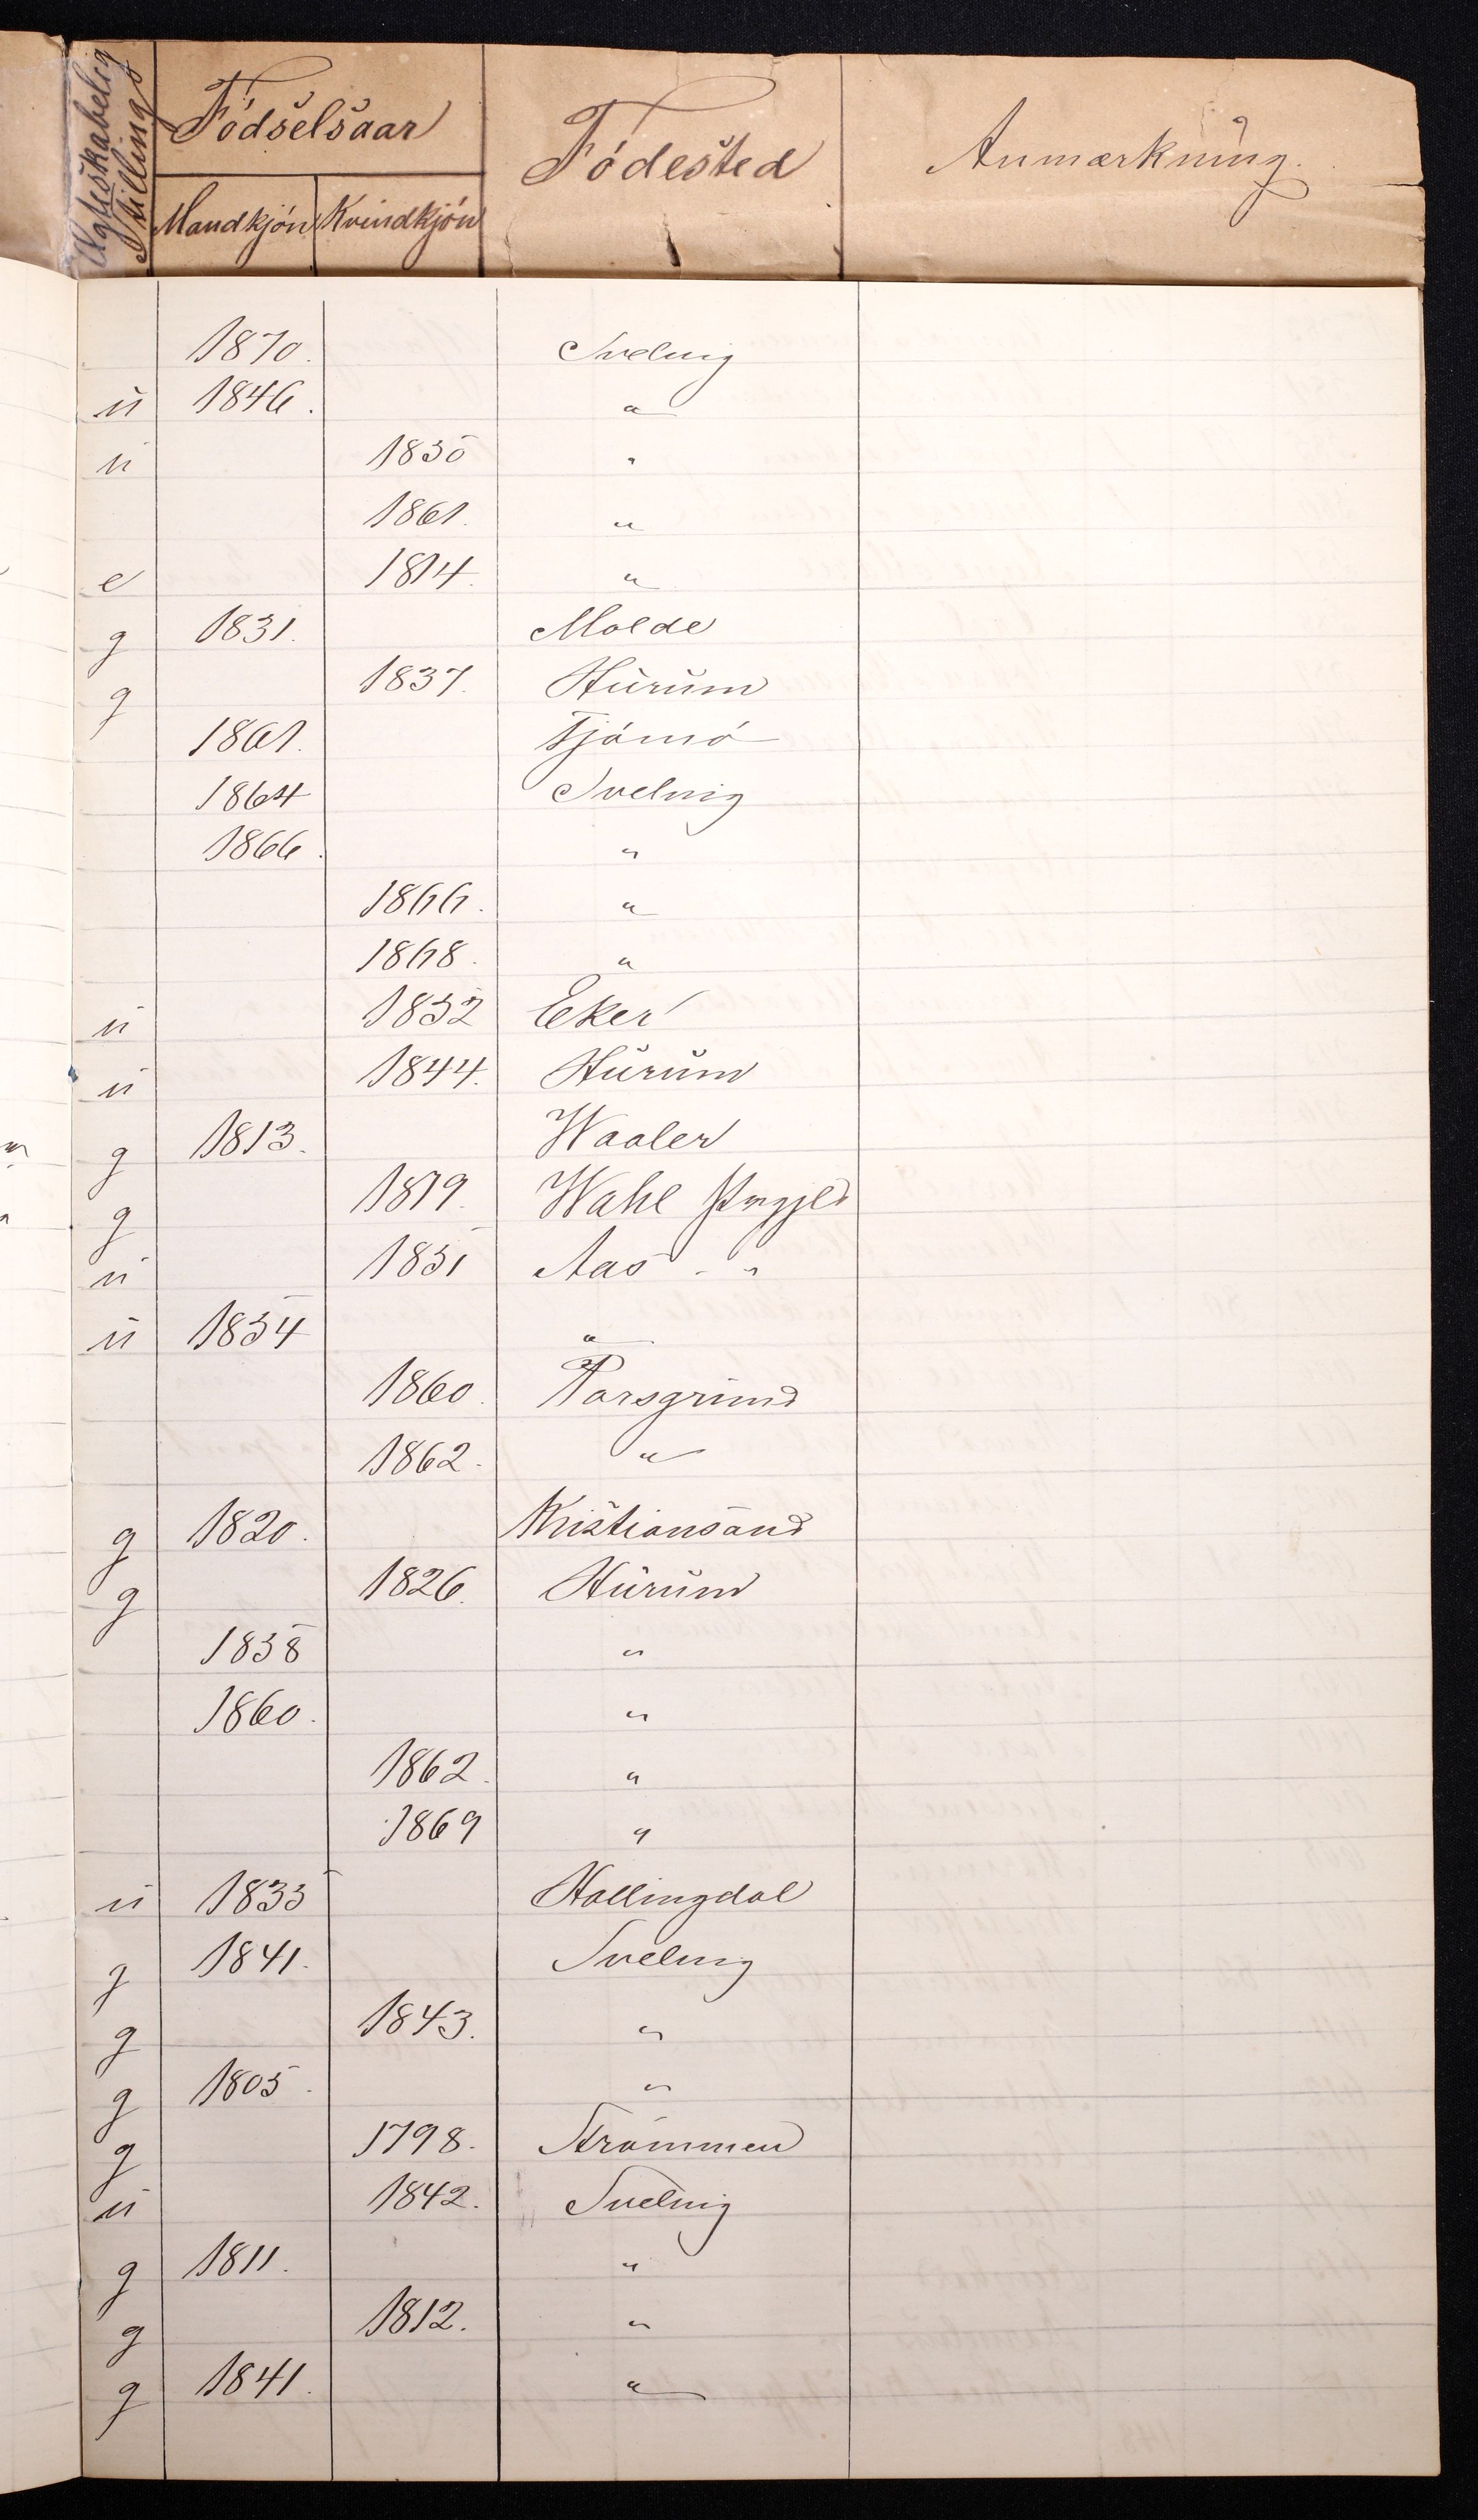 Ægteskabelig Stilling
Födselsaar
Mandkjön Kvindkjön
Födested
Anmærkning.
1870. Svelvig
u 1846. "
u 1835 "
1861. "
e 1814. "
g 1831. Molde
g 1837. Hurum
1861. Tjömö
1864 Svelvig
1866. "
1866. "
1868. "
u 1852 Eker
u 1844. Hurum
g 1813. Waaler
g 1819. Wahl Prgjld
u 1851 Aas - "
u 1854 "
1860. Porsgrund
1862. "
g 1820. Kristiansand
g 1826. Hurum
1858 "
1860. "
1862. "
1869 "
u 1835 Hallingdal
g 1841. Svelvig
g 1843. "
g 1805. "
g 1798. Strömmen
u 1842. Svelvig
g 1811. "
g 1812. "
g 1841. "